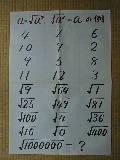 4 1 6
10 7 2
9 5 8
11 12 3
√9 √64 √1
√25 √49 √81
√100 √4 √36
√16 √0 √400
√1000000 - ?